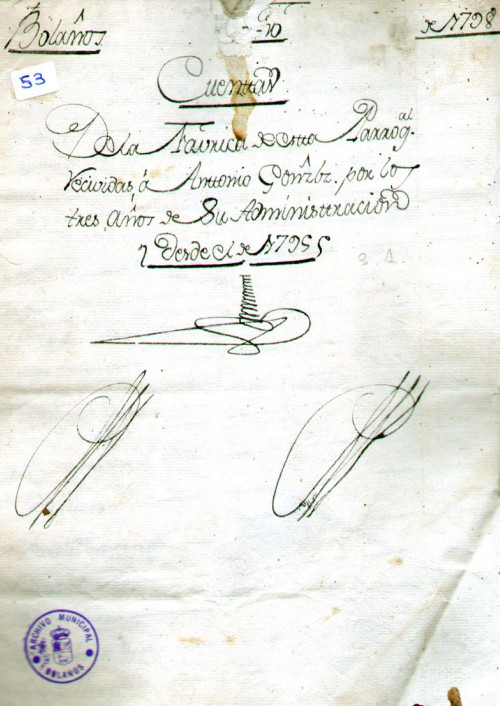 Bolaños. de 1798
53
Cuentas
De la Fabrica de esta Parroq.al
recividas á Antonio Gonzlz. por los
tres años de Su Administracion
desde el de 1795
ARCHIVO MUNICIPAL
BOLAÑOS